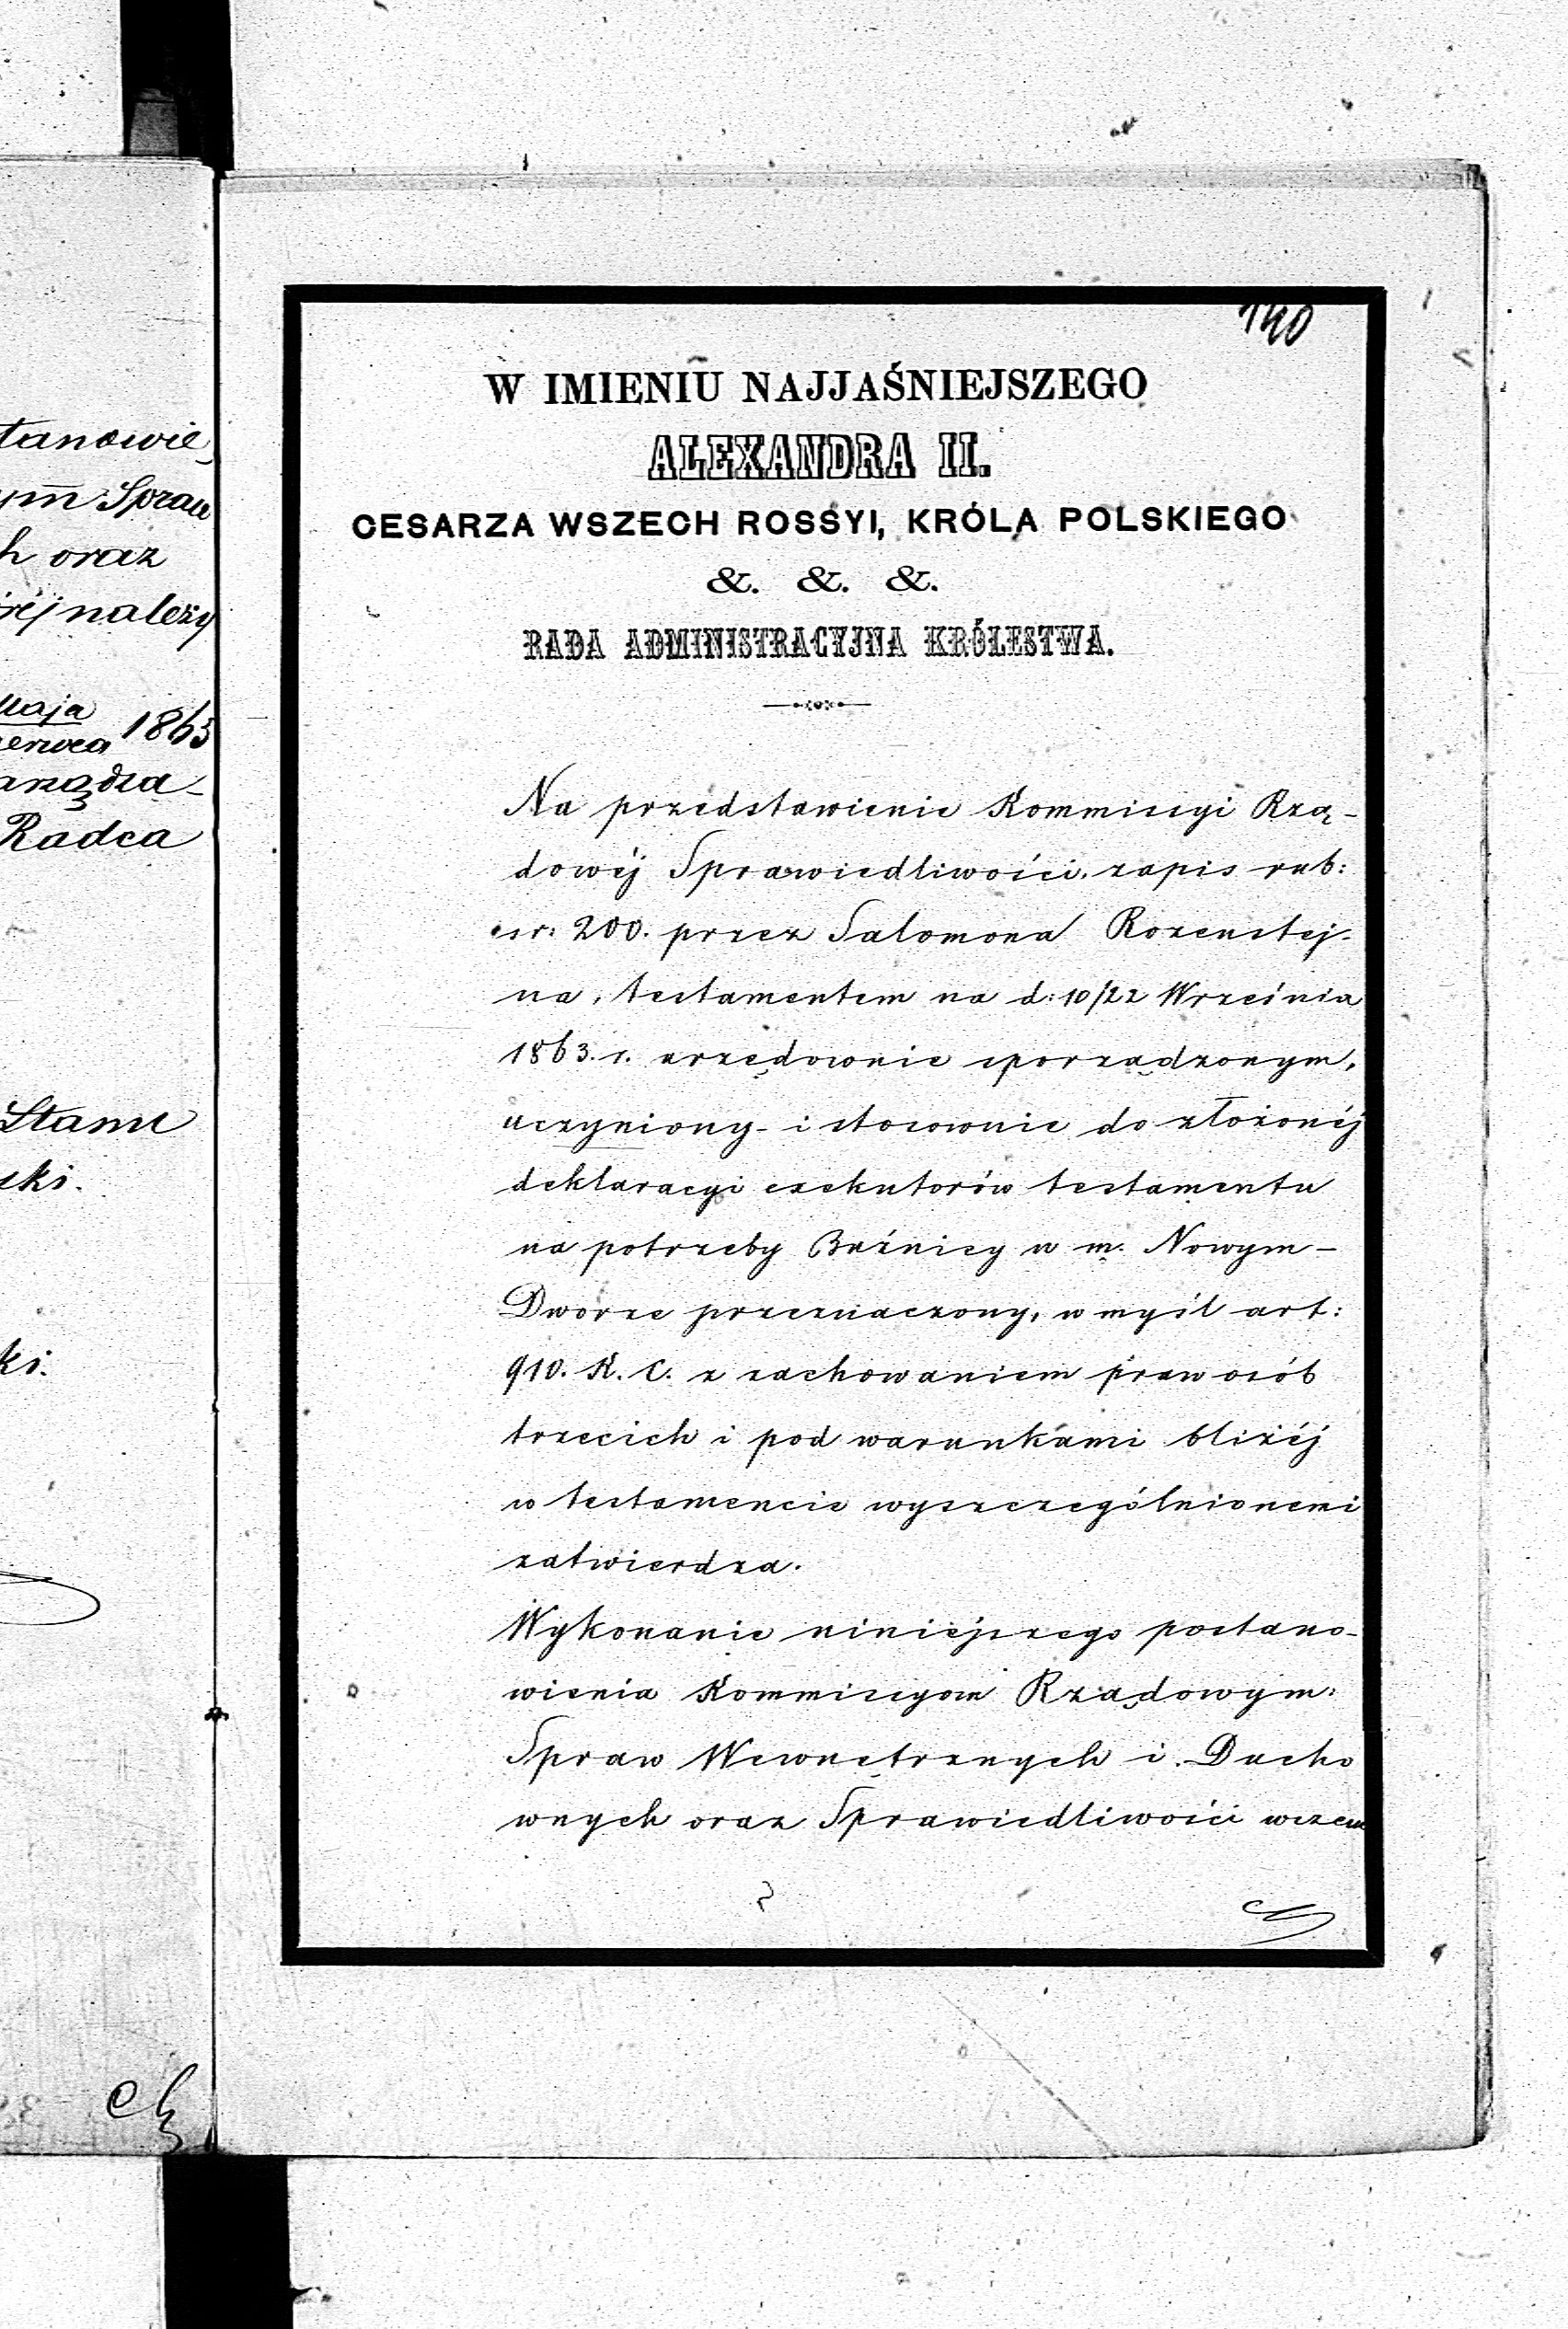 tanowie
ym Spraw
h oraz
rej należy
Maja
erwca 1863
arządza-
Radca
Stanu
ski.
ki.
140
W IMIENIU NAJJAŚNIEJSZEGO
ALEXANDRA II.
CESARZA WSZECH ROSSYI, KRÓLA POLSKIEGO
&. &. &.
RADA ADMINISTRACYJNA KRÓLESTWA.
Na przedstawienie Kommissyi Rzą-
dowéj Sprawiedliwości, zapis rub:
esr: 200. przez Salomona Rozenstej-
na, testamentem na d: 10/22 Września
1863. r. urzędownie sporządzonym,
uczyniony - i stosownie do złożonéj
deklaracyi exekutorów testamentu
na potrzeby Bużnicy w m. Nowym-
Dworze przeznaczony, w myśl art:
910. K. C. z zachowaniem praw osób
trzecich i pod warunkami bliżéj
w testamencie wyszczególnionemi
zatwierdza.
Wykonanie niniejszego postano-
wienia Kommissyom Rządowym:
Spraw Wewnętrznych i Ducho
wnych oraz Sprawiedliwości wczem